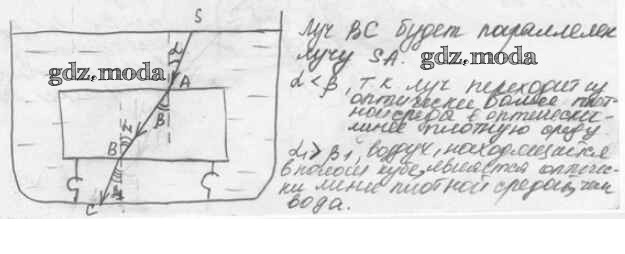 S
Луч BC будет параллелен
лучу SA.
gdz.moda
α
gdz.moda
A
α < β, т.к луч переходит из
оптически более плот-
ной среды в оптически
β
менее плотную среду
B
α₁ > β₁, воздух, находящийся
в полом кубе, является оптичес-
ки менее плотной средой, чем
C
вода.